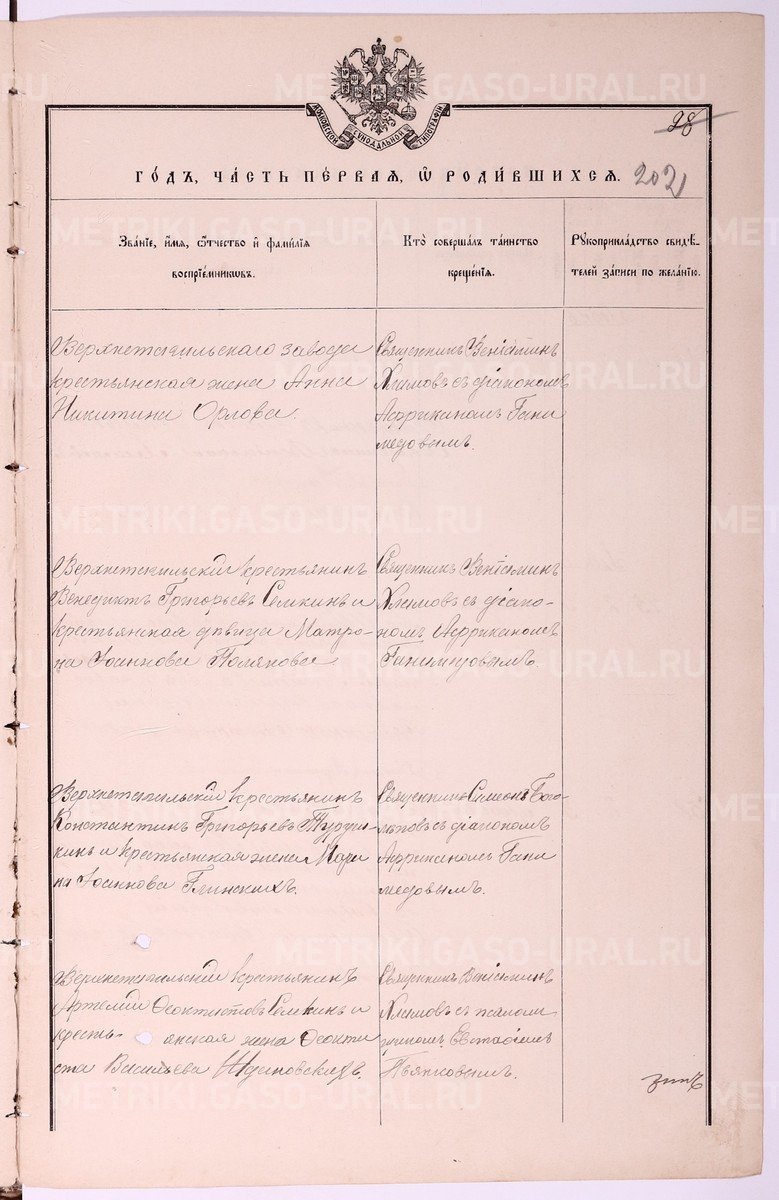 METRIKI.GASO-URAL.RU
МОСКОВСКОЙ СѴНОДАЛЬНОЙ ТИПОГРАФІИ
28
ГО́ДЪ, ЧА́СТЬ ПЕ́РВАЯ, Ѽ РОДИ́ВШИХСЯ.
202
Зва́нїе, и́мя, ѻ҆́тчество и҆ фами́лїя
воспрїе́мниковъ.
Кто̀ соверша́лъ та́инство
креще́нїя.
Рꙋкоприкла́дство свидѣ́-
телей за́писи по жела́нїю.
Верхнетагильскаго завода
крестьянская жена Анна
Никитина Орлова.
Священникъ Веніаминъ
Хлыновъ съ діакономъ
Африканомъ Гани
медовымъ.
Верхнетагильскій крестьянинъ
Венедиктъ Григорьевъ Семкинъ и
крестьянская дѣвица Матро-
на Іоаннова Полякова
Священникъ Веніаминъ
Хлыновъ съ діако-
номъ Африканомъ
Ганимедовымъ.
Верхнетагильскій крестьянинъ
Константинъ Григорьевъ
кинъ и крестьянская жена Мари
на Іоаннова Глинскихъ.
Священникъ Симеонъ Бого-
лѣповъ съ діакономъ
Африканомъ Гани
медовымъ.
Верхнетагильскій крестьянинъ
Артемій Ѳеоктистовъ Семкинъ и
кресть- янская жена Ѳеокти
ста Васильева
Священникъ Веніаминъ
Хлыновъ съ псалом
щикомъ Евстафіемъ